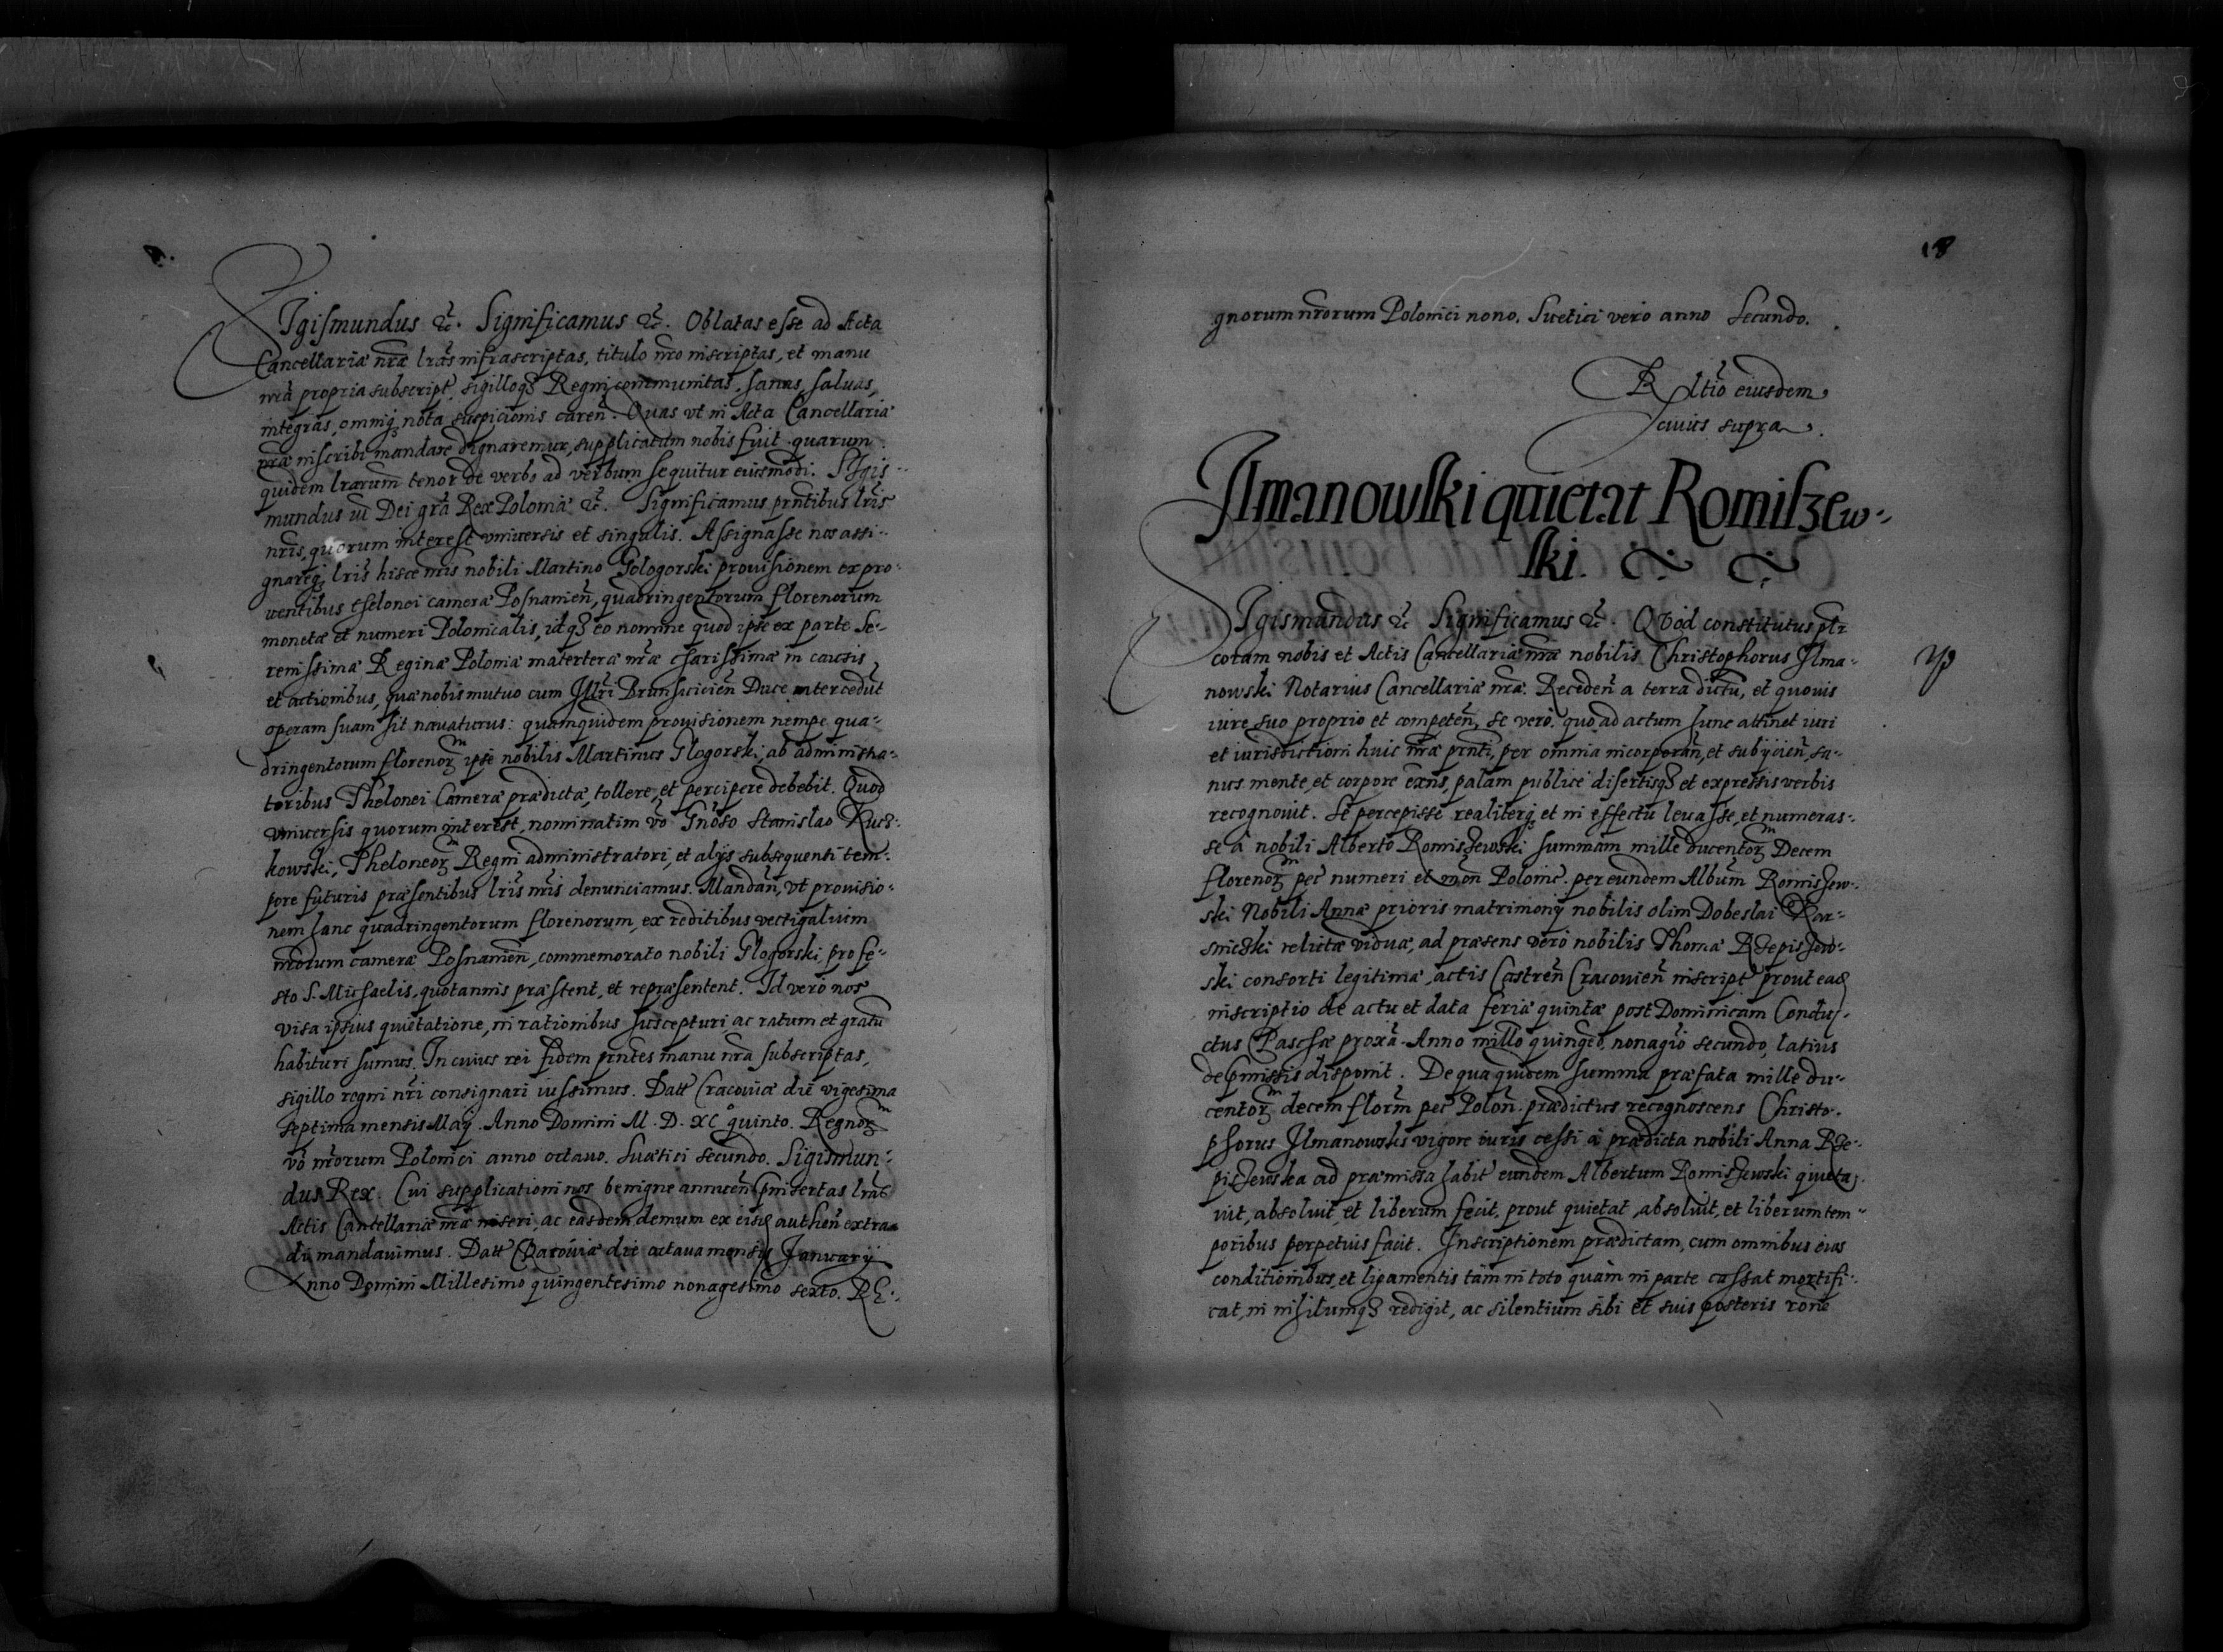 SIgismundus etc. Significamus etc. Oblatas esse ad Acta
Cancellariæ nr̃æ lr̃as infrascriptas, titulo nr̃o inscriptas, et manu
nr̃a propria subscript. sigilloq; Regni communitas, sanas, saluas,
integras, omniq; nota suspicionis caren̄. Quas vt in Acta Cancellariæ
nr̃æ inscribi mandare dignaremur, supplicatum nobis fuit quarum
quidem lr̃arum tenor de verbo ad verbum sequitur eiusmodi. SIgis-
mundus iii Dei gr̃a Rex Poloniæ etc. Significamus pr̃ntibus lr̃is
nr̃is, quorum interest vniuersis et singulis. Assignasse nos assi-
gnareq; lr̃is hisce nr̃is nobili Martino Gologorski prouisionem ex pro-
uentibus thelonei cameræ Posnanien̄, quadringentorum florenorum
monetæ et numeri Polonicalis, idq; eo nomine quod ipse ex parte Se-
renissimæ Reginæ Poloniæ materteræ nr̃æ charissimæ in causis
et actionibus, quæ nobis mutuo cum Ill̃ri Brunsuicien̄ Duce intercedūt
operam suam sit nauaturus: quamquidem prouisionem nempe qua-
dringentorum florenoꝝ ipse nobilis Martinus Glogorski, ab administra-
toribus Thelonei Cameræ prædictæ, tollere, et percipere debebit. Quod
vniuersis quorum interest, nominatim vō Gn̄oso Stanislao Kucz-
kowski, Theloneoꝝ Regni administratori, et alijs subsequenti tem-
pore futuris præsentibus lr̃is nr̃is denunciamus. Mandan̄, vt prouisio-
nem hanc quadringentorum florenorum, ex reditibus vectigalium
nr̃orum cameræ Posnanien̄, commemorato nobili Glogorski, pro fe-
sto S. Michaelis, quotannis præstent, et repræsentent. Id vero nos
visa ipsius quietatione, in rationibus suscepturi, ac ratum et gratū
habituri sumus. In cuius rei fidem pr̃ntes manu nr̃a subscriptas,
sigillo regni nr̃i consignari iussimus. Datt Cracouiæ die vigesima
septima mensis Maij. Anno Domini M. D. XC° quinto. Regnoꝝ
vō nr̃orum Polonici anno octauo. Suætici secundo. Sigismun-
dus Rex. Cui supplicationi nos benigne annuen̄ p̄insertas lr̃as
Actis Cancellariæ nr̃æ inseri, ac easdem demum ex eisd authen̄ extra-
di mandauimus. Datt Cracouiæ die octaua mensis Januarij
Anno Domini Millesimo quingentesimo nonagesimo sexto. Re-
18
gnorum nr̃orum Polonici nono. Suetici vero anno Secundo.
Rltio eiusdem
cuius supra.
Ilmanowski quietat Romiszew-
ski.
SIgismundus etc Significamus etc. Qvod constitutus pl̃r
coram nobis et Actis Cancellariæ nr̃æ nobilis Christophorus Ilma-
nowski Notarius Cancellariæ nr̃æ. Receden̄ a terra districtu, et quouis
iure suo proprio et competen̄, se vero quo ad actum hunc attinet iuri
et iurisdictioni huic nr̃æ pr̃nti, per omnia incorporan̄, et subijcien̄, sa-
nus mente et corpore exñs, palam publice disertisq; et expressis verbis
recognouit. Se percepisse realiterq; et in effectu leuasse, et numeras-
se a nobili Alberto Romiszewski summam mille ducentoꝝ Decem
florenoꝝ pec̃ numeri et mon̄ Polonic̃. per eundem Alb̃um Romiszew-
ski Nobili Annæ prioris matrimonij nobilis olim Dobeslai Kar-
sniczki relictæ viduæ, ad præsens vero nobilis Thomæ Rzepiszew-
ski consorti legitimæ, actis Castren̄ Cracouien̄ inscript prout ead
inscriptio de actu et data feria quinta post Dominicam Condu-
ctus Paschæ proxa̅. Anno millo quingeo, nonagi̅o secundo, latius
de p̄missis disponit. De qua quidem summa præfata mille du-
centoꝝ decem flor̃m pec̃ Polon̄. prædictus recognoscens Christo-
phorus Ilmanowski vigore iuris cessi a prædicta nobili Anna Rze-
piszewska ad præmissa habit̃ eundem Albertum Romiszewski quieta-
uit, absoluit, et liberum fecit, prout quietat, absoluit, et liberum tem-
poribus perpetuis facit. Inscriptionem prædictam, cum omnibus eius
conditionibus, et ligamentis tàm in toto quàm in parte cassat mortifi-
cat, in nihilumq; redigit, ac silentium sibi et suis posteris rõne